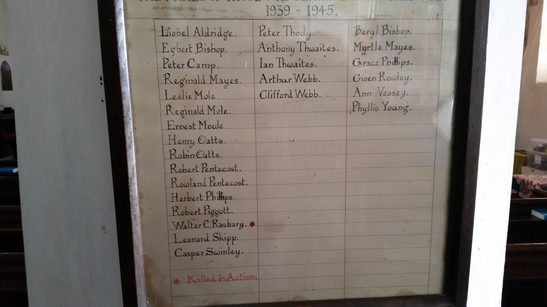 1939 - 1945.
Lionel Aldridge.
Egbert Bishop.
Peter Camp.
Reginald Mayes.
Leslie Mole.
Reginald Mole.
Ernest Moule.
Henry Oatts.
Robin Oatts.
Robert Pentecost.
Rowland Pentecost.
Herbert Phillips.
Robert Piggott.
Walter C. Rasbary. *
Leonard Skipp.
Casper Swinley.
* Killed in Action.
Peter Thody.
Anthony Thwaites.
Ian Thwaites.
Arthur Webb.
Clifford Webb.
Beryl Bishop.
Myrtle Mayes.
Grace Phillips.
Gwen Rowley.
Ann Vessey.
Phyllis Young.